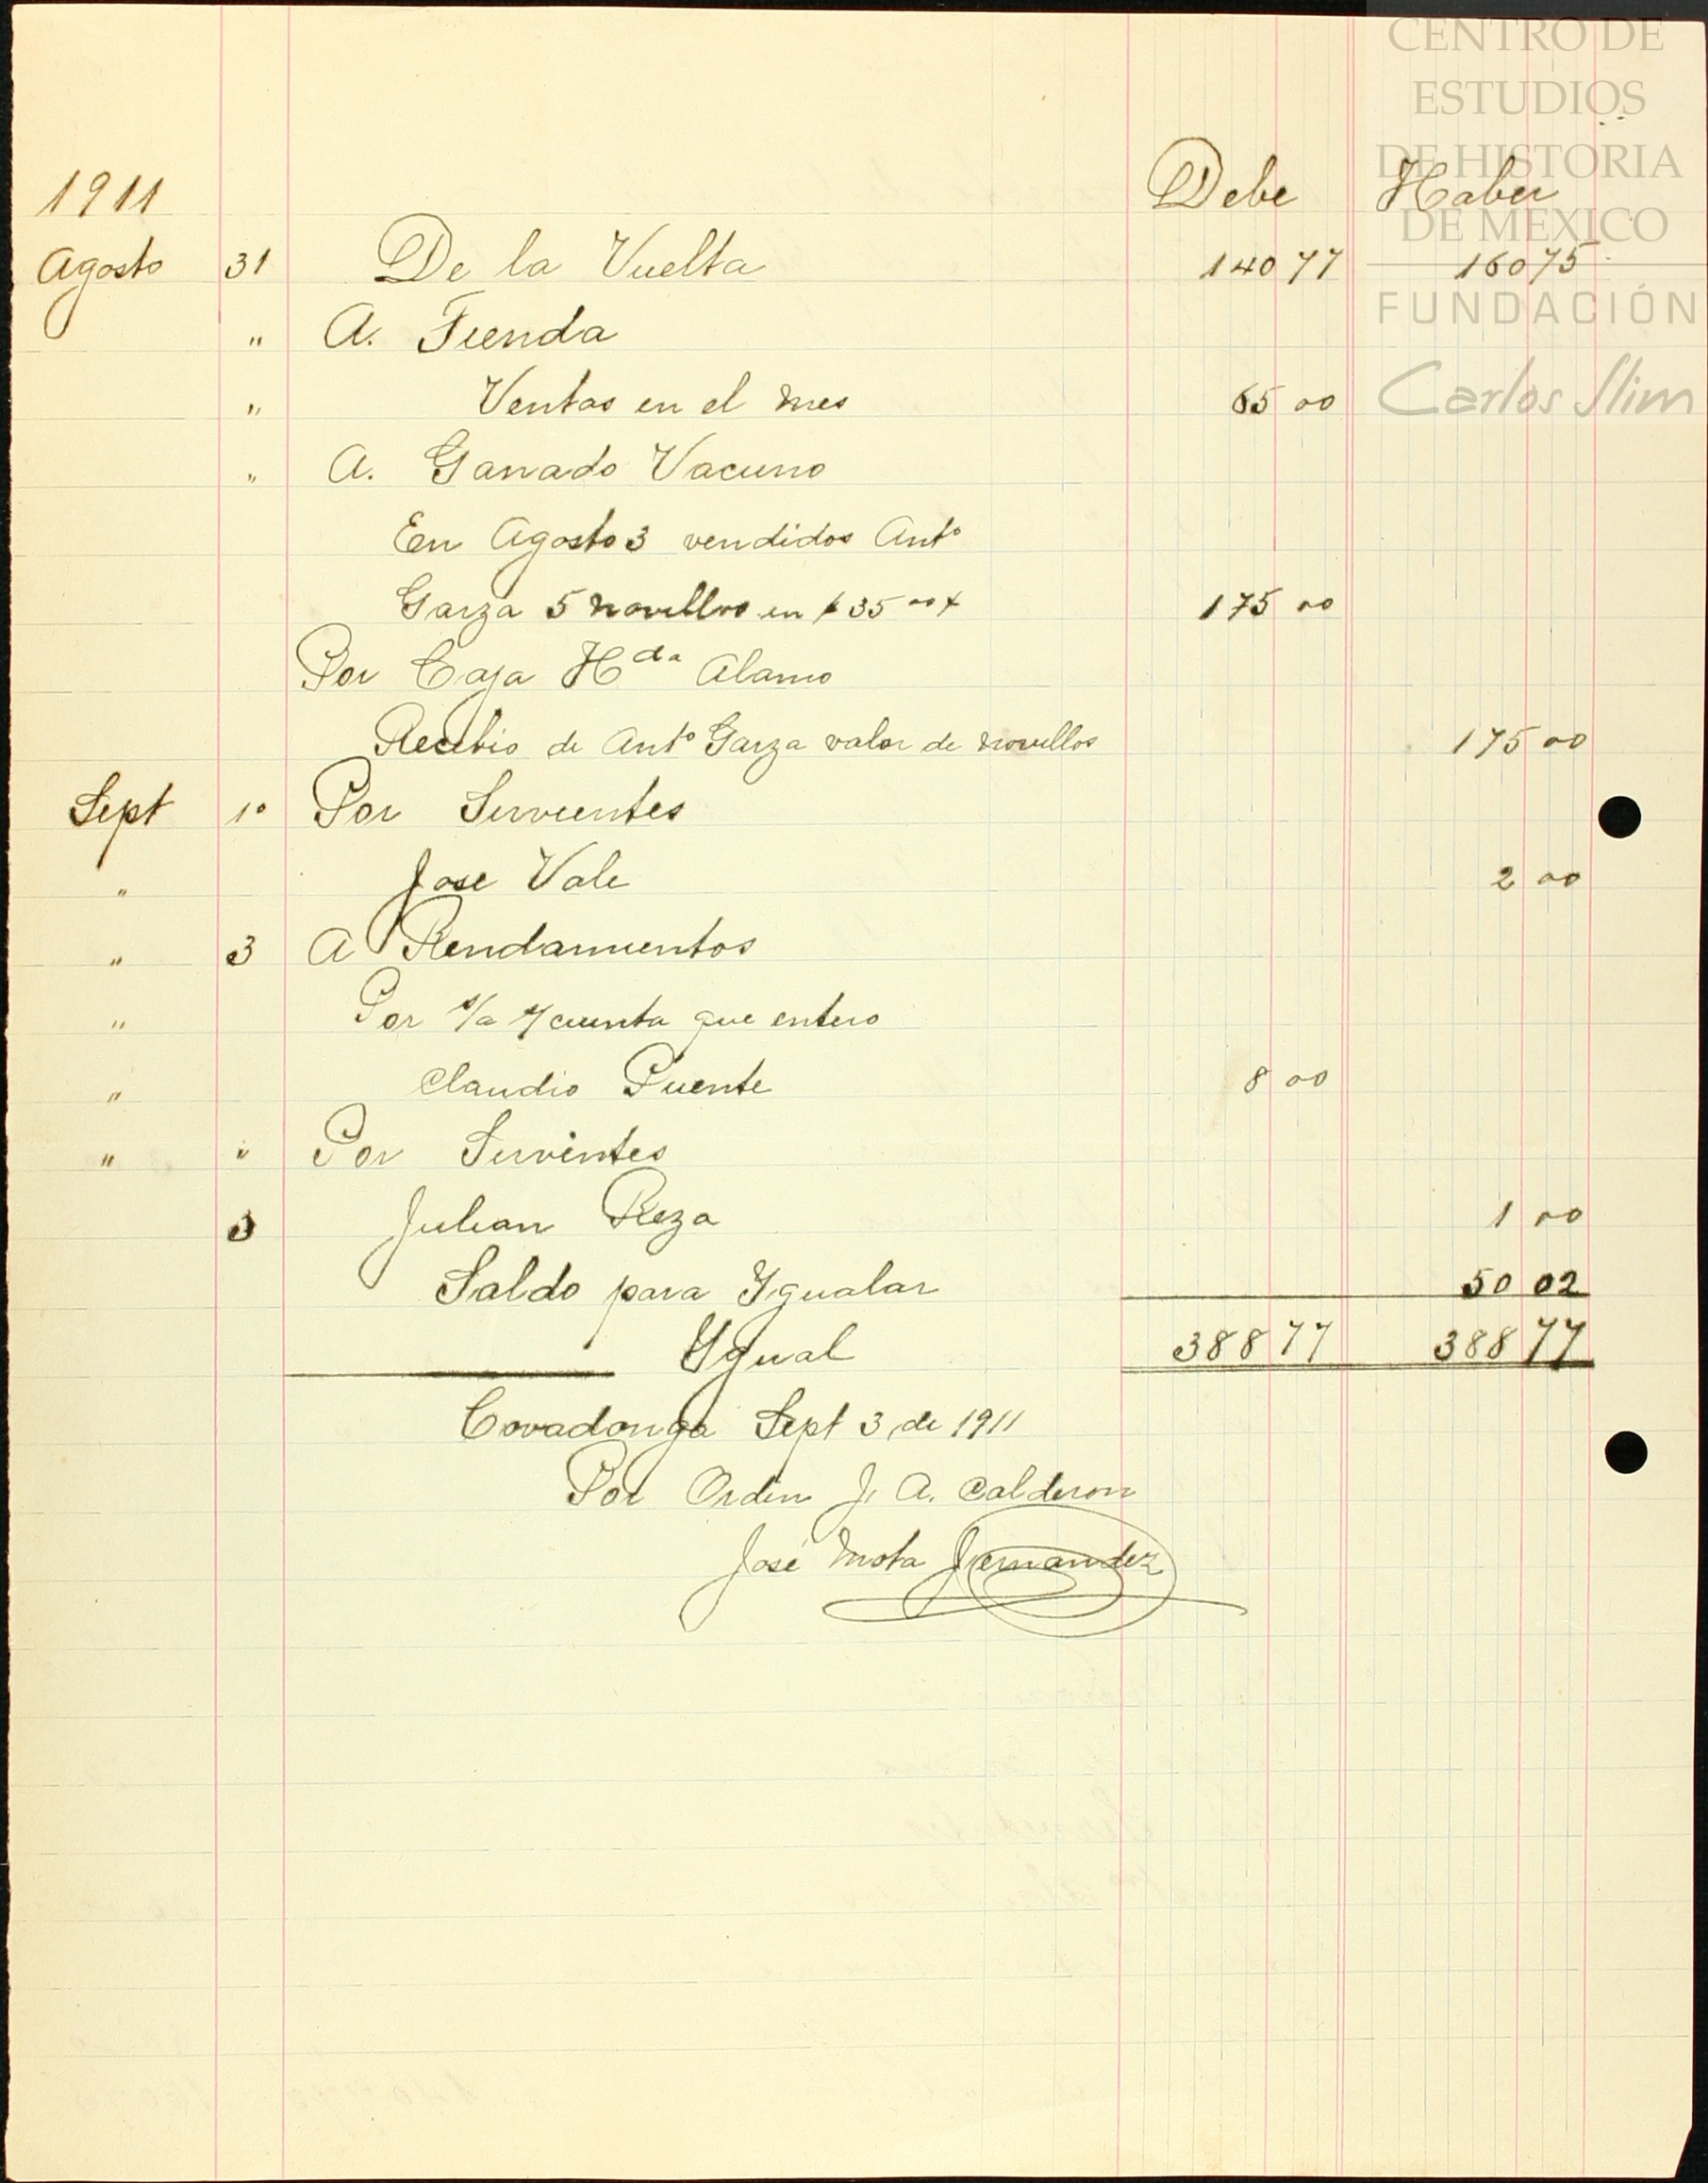 CENTRO DE
ESTUDIOS
DE HISTORIA
DE MEXICO
FUNDACIÓN
Carlos Slim
1911 Debe Haber
Agosto 31 De la Vuelta 140 77 160 75
" A. Tienda
" Ventas en el mes 65 00
" A. Ganado Vacuno
En Agosto 3 vendidos Antº
Garza 5 novillos en $ 35 00 175 00
Por Caja Hda Alamo
Recibio de Antº Garza valor de novillos 175 00
Sept 1º Por Sirvientes
" Jose Vale 2 00
" 3 A Rendamientos
" Por cuenta que entero
" Claudio Puente 8 00
" " Por Sirvintes
3 Julian Reza 1 00
Saldo para Ygualar 50 02
Ygual 388 77 388 77
Covadonga Sept 3 de 1911
Por Orden J. A. Calderon
José Mota Fernandez